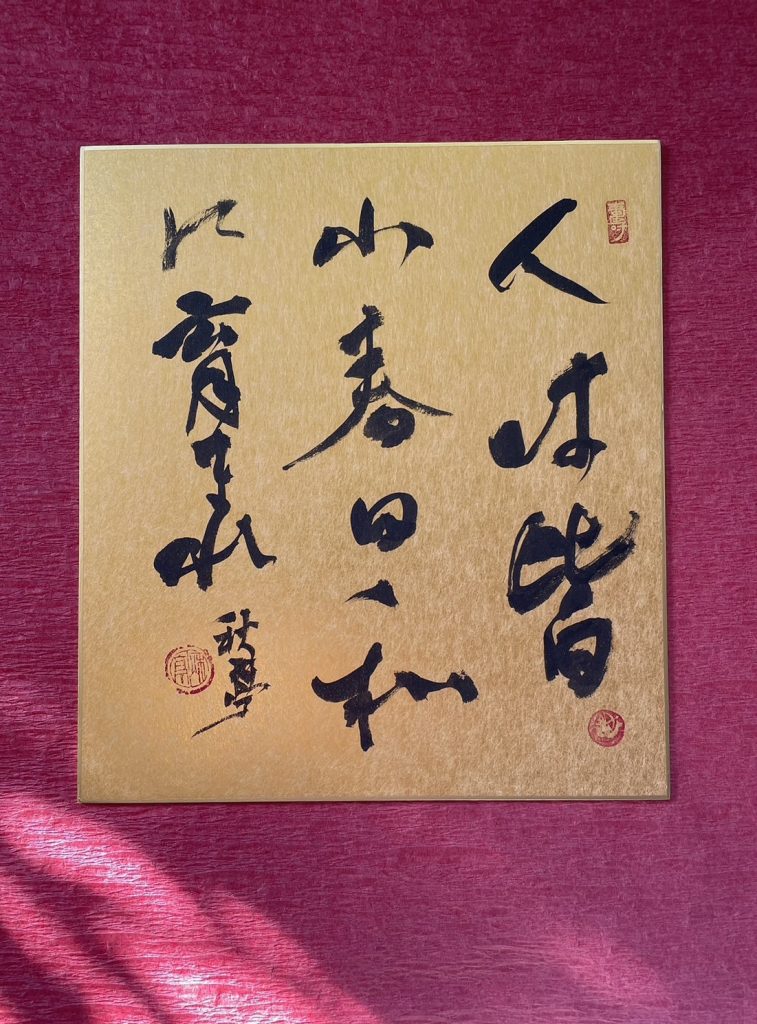 人は皆
小春日和
に育まれ